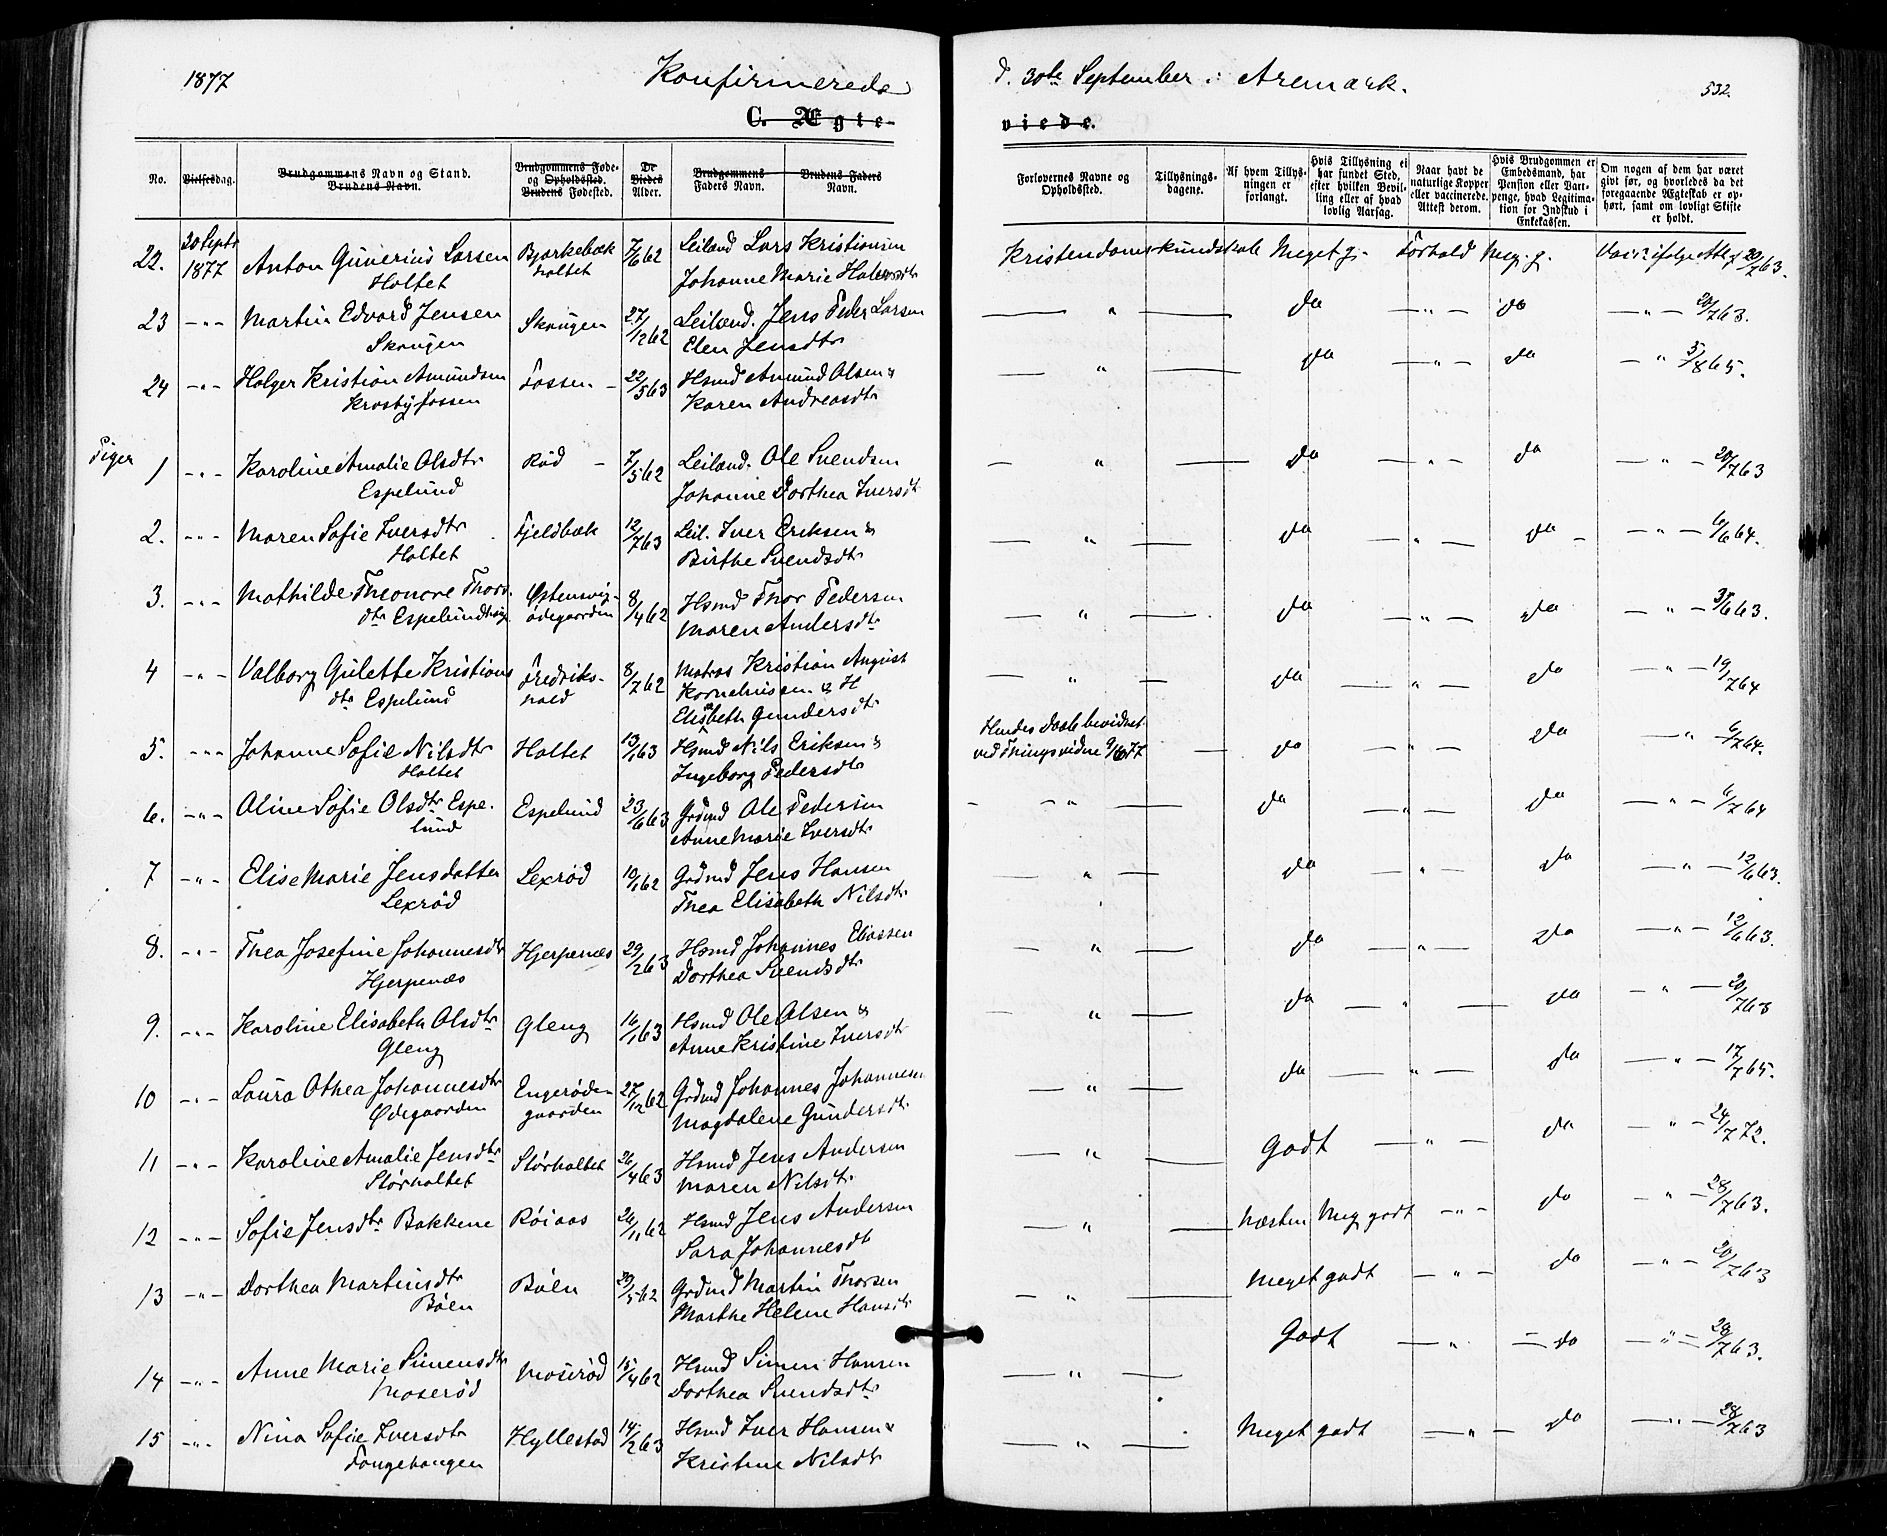 1877 Konfirmerede d. 30te September i Aremark. 532.
C. Ægteviede.
No. Vielsesdag. Brudgommens Navn og Stand. Brudens Navn. Brudgommens Føde- og Opholdssted. Brudens Fødested. De Viedes Alder. Brudgommens Faders Navn. Brudens Faders Navn. Forlovernes Navne og Opholdssted. Tillysningsdagene. Af hvem Tillysningen er forlangt. Hvis Tillysning ei har fundet Sted, efter hvilken Bevilling eller af hvad lovlig Aarsag. Naar havt de naturlige Kopper eller vaccinerede. Attest derom. Hvis Brudgommen er Embedsmand, har Pension eller Vartpenge, hvad Legitimation for Indskud i Enkekassen. Om nogen af dem har været givt før, og hvorledes da det foregaaende Ægteskab er ophørt, samt om lovligt Skifte er holdt.
22. 30 Septr 1877 Anton Guverius Larsen Bjørkebæk 7/6 62 Leilænd Lars Kristiansen Kristendomskundskab Meget g. Forhold Meg. g. Vac. ifølge Att. 20/7 63.
Holtet holtet Johanne Marie
23 -"- Martin Edvard Jensen Skougen 27/12 62 Leilænd. Jens Peder Larsen " do -"- do -"- 20/7 63.
Skougen Elen Jensdtr
24 -"- Holger Kristian Amundsen Fossen - 22/5 63 Hsmd Amund Olsen & " do -"- do -"- 5/8 65.
Krosbyfossen Karen Andreasdtr
Piger
1 -"- Karoline Amalie Olsdtr Rød - 7/5 62 Leilænd. Ole Svendsen " do -"- do -"- 20/7 63
Espelund Johanne Dorthea Iversdt
2. -"- Maren Sofie Iversdtr Fjeldbæk 12/7 63 Leil. Iver Eriksen & " do " do - -"- 6/6 64.
Holtet Birthe Svendsdtr
3. -"- Mathilde Theonore Thors- Østensvig- 8/4 62 Hsmd Thor Pedersen " do -"- do -"- 3/6 63.
dtr Espelundhag ødegaarden Maren Andersdtr
4 -"- Valborg Gulette Kristians Fredriks- 8/7 62 Matros Kristian August " do " do -"- 19/7 64
dtr Espelund hald Korneliussen & H
Elisabeth Gundersdtr
5. -"- Johanne Sofie Nilsdtr Holtet 13/1 63 Hsmd Nils Eriksen & Hendes Daab bevidnet do " do -"- 6/7 64.
Holtet Ingeborg Pedersdtr ved Thingsvidne 9/10 77
6. -"- Oline Sofie Olsdtr Espe- Espelund 23/6 63 Grdmd Ole Pedersen -"- do " do -"- 6/7 64
lund Anne Marie Iversdtr
7 -"- Elise Marie Jensdatter Lexrød 10/1 62 Grdmd Jens Hansen " do -"- do -"- 12/6 63.
Lexrød Thea Elisabeth Nilsdtr
8. -"- Thea Josefine Johannesdtr Hjerpenæs 29/12 63 Hsmd Johannes Eliassen " do -"- do -"- 12/6 63.
Hjerpenæs Dorthea Svendsdtr
9. -"- Karoline Elisabeth Olsdtr Gleng 16/1 63 Hsmd Ole Olsen & " do " do -"- 20/7 63
Gleng Anne Kristine Iversdtr
10 -"- Laura Othea Johannesdtr Engerøde- 27/12 62 Grdmd Johannes Johannesen " do " do -"- 17/7 65.
Ødegaarden gaarden Magdalene Gundersdtr
11 -"- Karoline Amalie Jensdtr Størholtet 26/4 63 Hsmd Jens Andersen " Godt -"- do -"- 24/7 72.
Størholtet Maren Nilsdtr
12 -"- Sofie Jensdtr Bakkene Røiaas 26/11 62 Hsmd Jens Andersen " Næsten Meg. godt -"- do -"- 28/7 63.
Sara Johannesdtr
13 -"- Dorthea Martinsdtr Bøen 29/5 62 Grdmd Martin Thorsen " Meget godt -"- do -"- 20/7 63
Bøen Marthe Helene Hansdtr
14 -"- Anne Marie Simensdtr Moserød 15/4 62 Hsmd Simen Hansen " Godt " do -"- 28/7 63.
Moserød Dorthea Svendsdtr
15 -"- Nina Sofie Iversdtr Hyllestad 14/12 63 Hsmd Iver Hansen & " Meget godt -"- do -"- 28/7 63
Kristine Nilsdtr